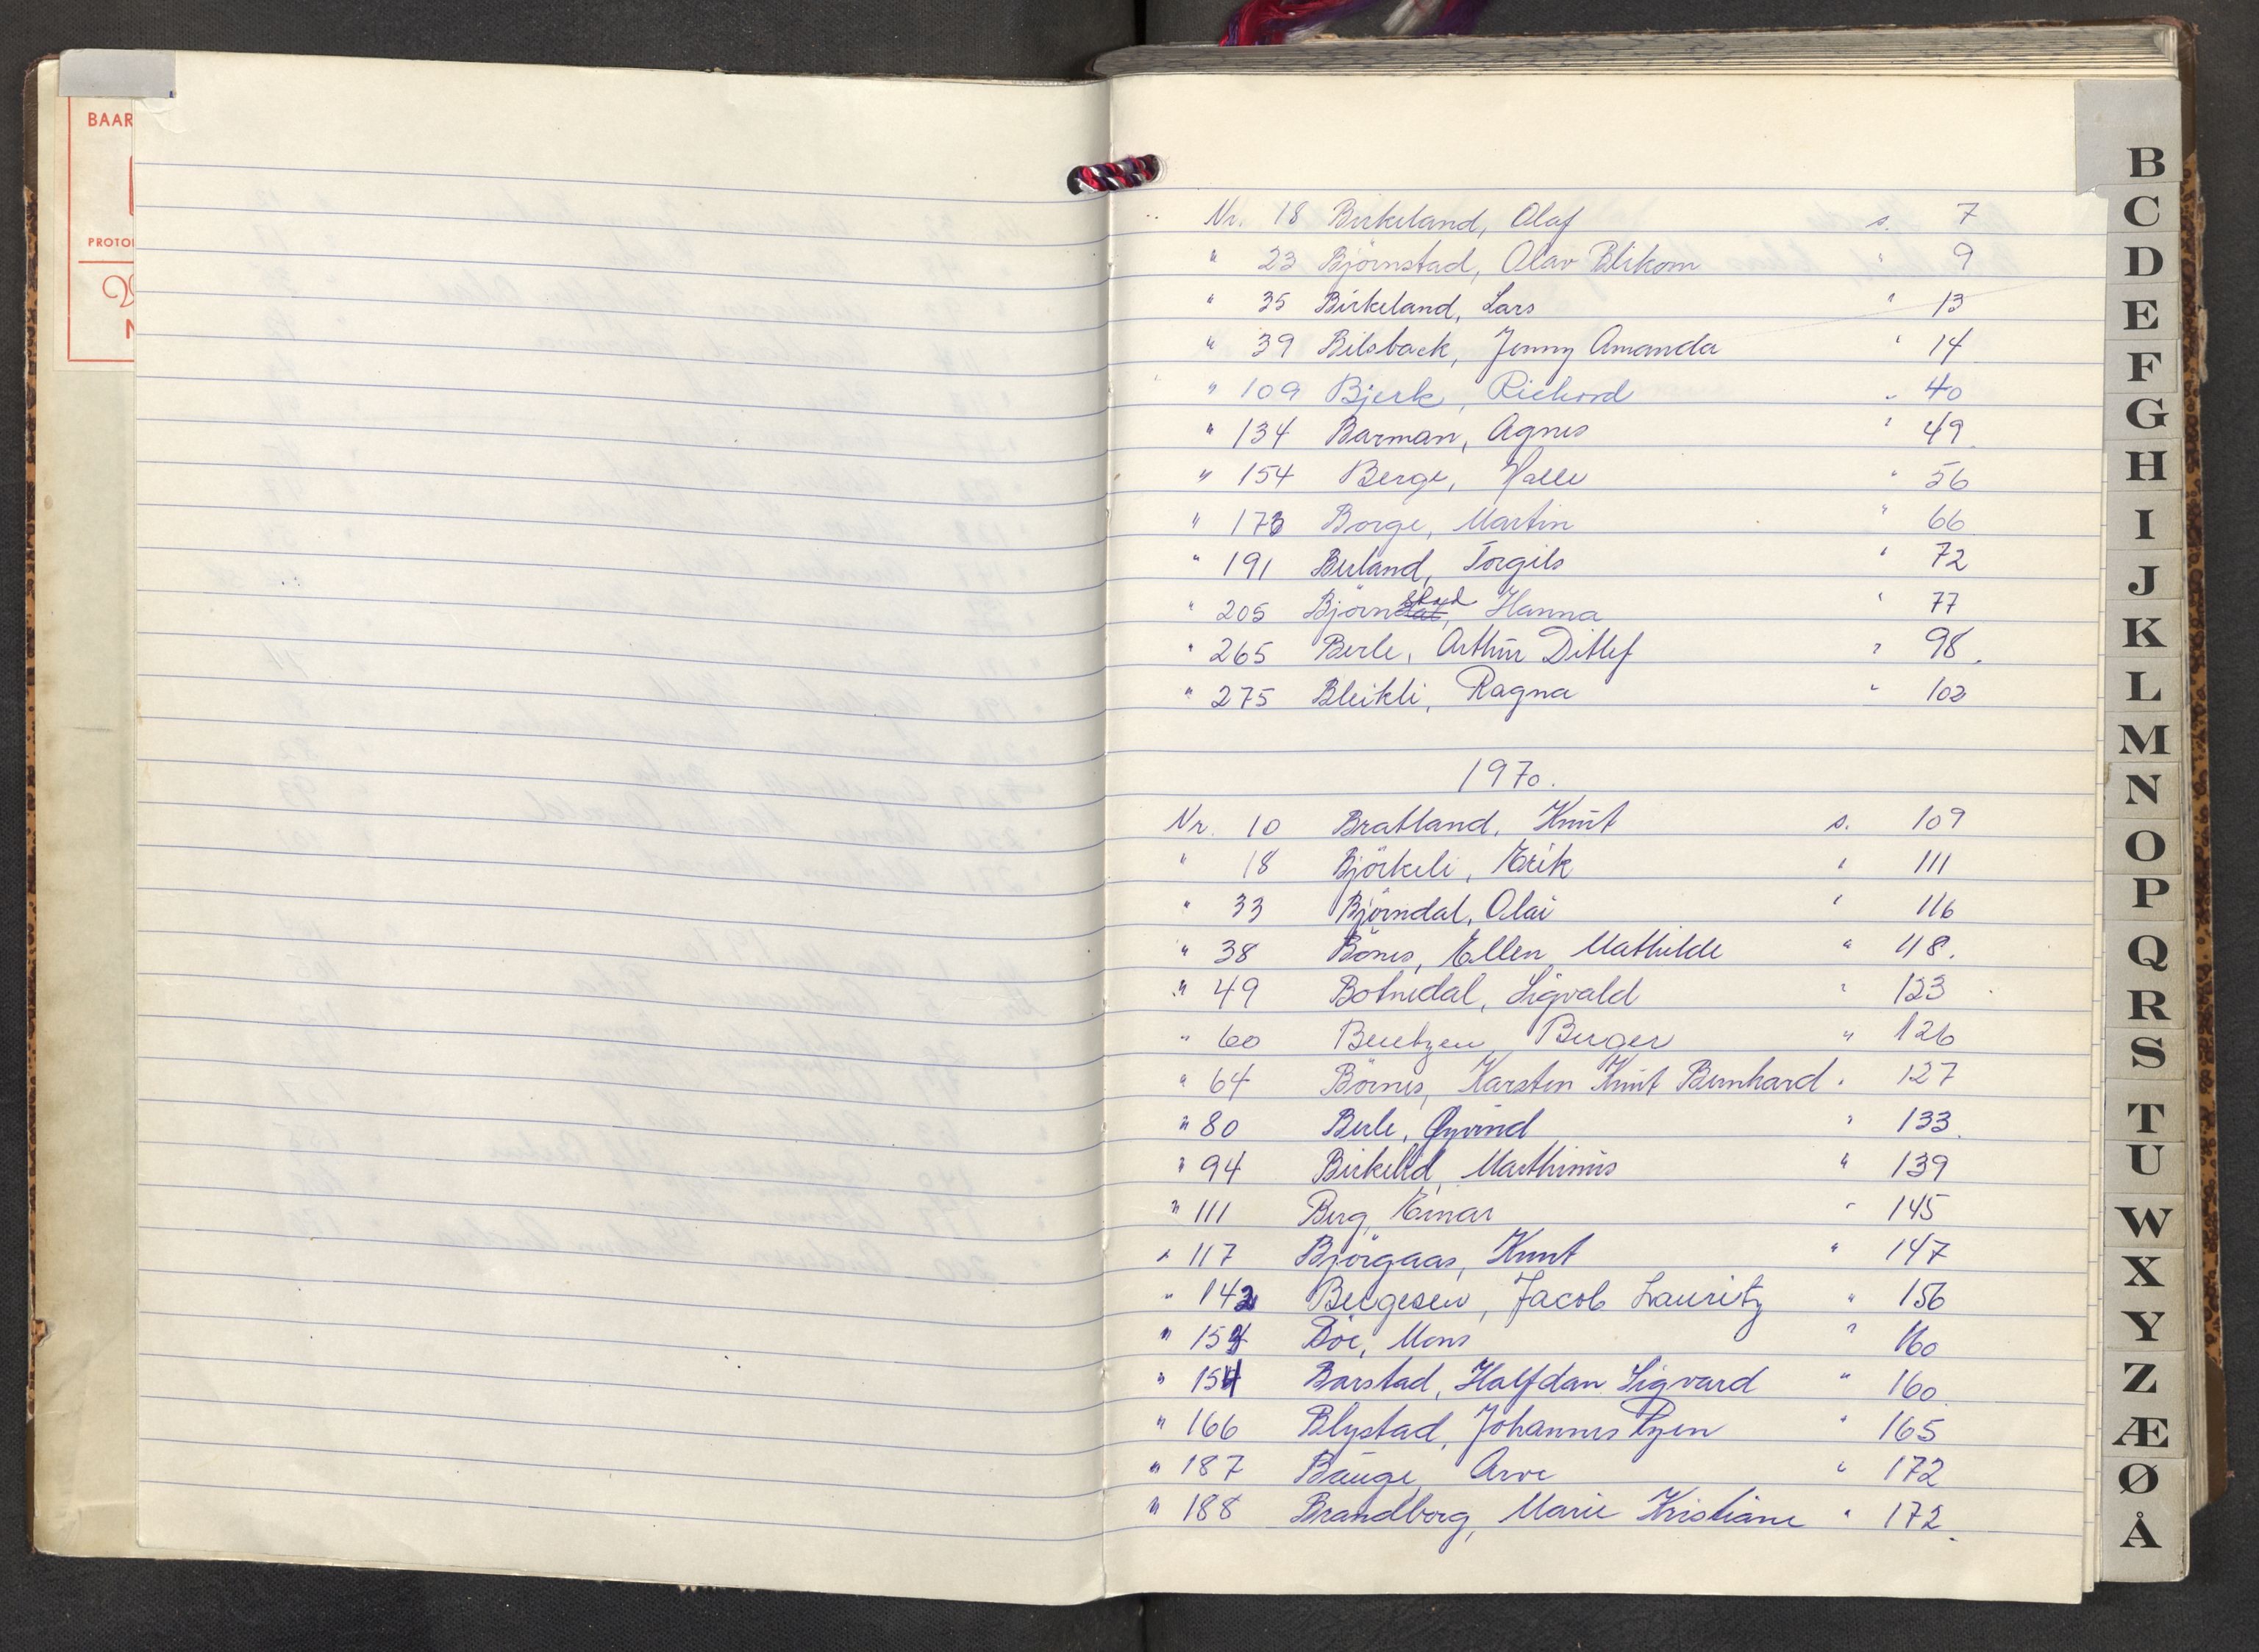 BAAR
PROTO
Nr. 18 Birkeland, Olaf s. 7
" 23 Björnstad, Olav Blikom " 9
" 35 Birkeland, Lars " 13
" 39 Bilsback, Jenny Amanda " 14
" 109 Bjerk, Richard " 40
" 134 Barman, Agnes " 49.
" 154 Berge, Halle " 56
" 173 Borge, Martin " 66
" 191 Berland, Torgils " 72
" 205 Björnstad, Hanna " 77
" 265 Berle, Arthur Ditlef " 98.
" 275 Bleikli, Ragna " 102
1970.
Nr. 10 Bratland, Knut s. 109
" 18 Björkeli, Erik " 111
" 33 Björndal, Olai " 116
" 38 Börnes, Ellen Mathilde " 118.
" 49 Botnedal, Sigvald " 123
" 60 Berentzen Birger " 126
" 64 Börnes, Karsten Knut Bernhard " 127
" 80 Berle, Øyvind " 133.
" 94 Birkelid, Marthinus " 139
" 111 Berg, Einar " 145
" 117 Björgaas, Knut " 147
" 142 Bergesen, Jacob Lauritz " 156
" 15 Böe, Mons " 160
" 154 Barstad, Halfdan Sigvard " 160.
" 166 Blystad, Johannes Ryen " 165
" 187 Bauge, Arve " 172
" 188 Brandborg, Marie Kristiane " 172.
B
C
D
E
F
G
H
I
J
K
L
M
N
O
P
Q
R
S
T
U
W
X
Y
Z
Æ
Ø
Å